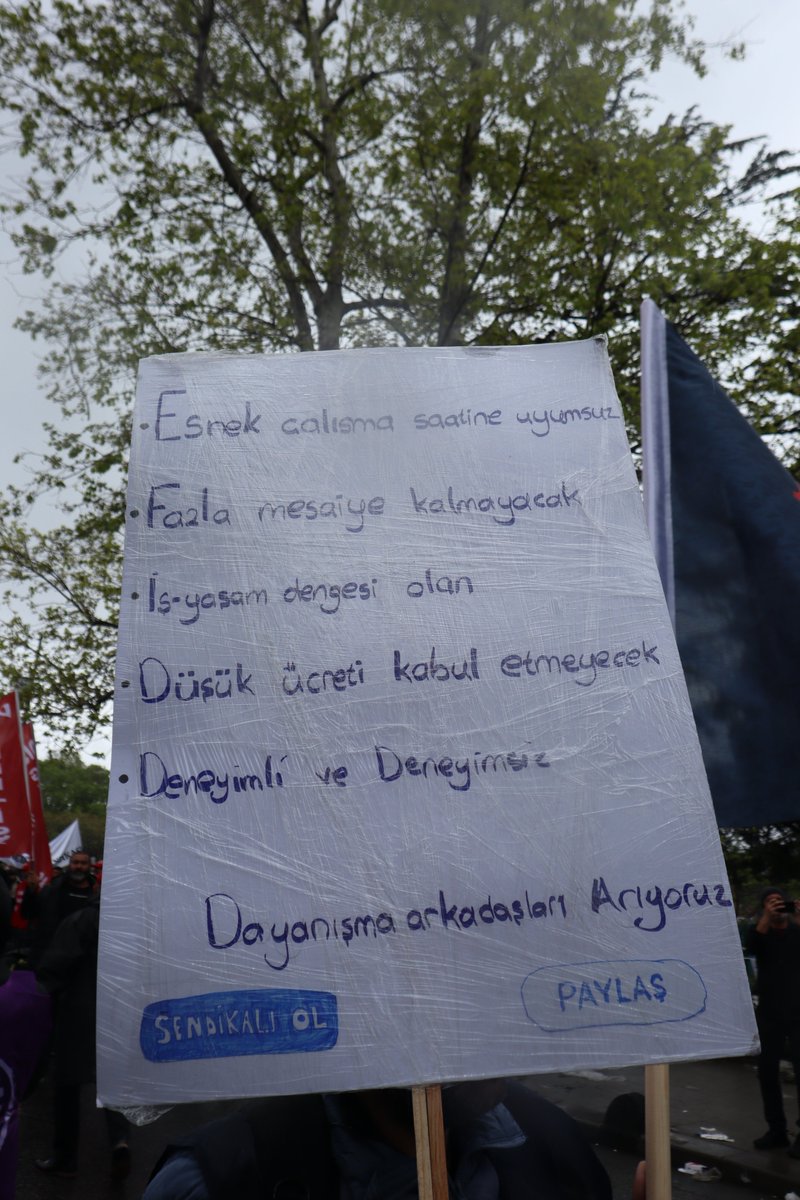 • Esnek calısma saatine uyumsuz
• Fazla mesaiye kalmayacak
• İş-yaşam dengesi olan
• Düşük ücreti kabul etmeyecek
• Deneyimli ve Deneyimsiz
Dayanışma arkadaşları Arıyoruz
SENDİKALI OL
PAYLAŞ